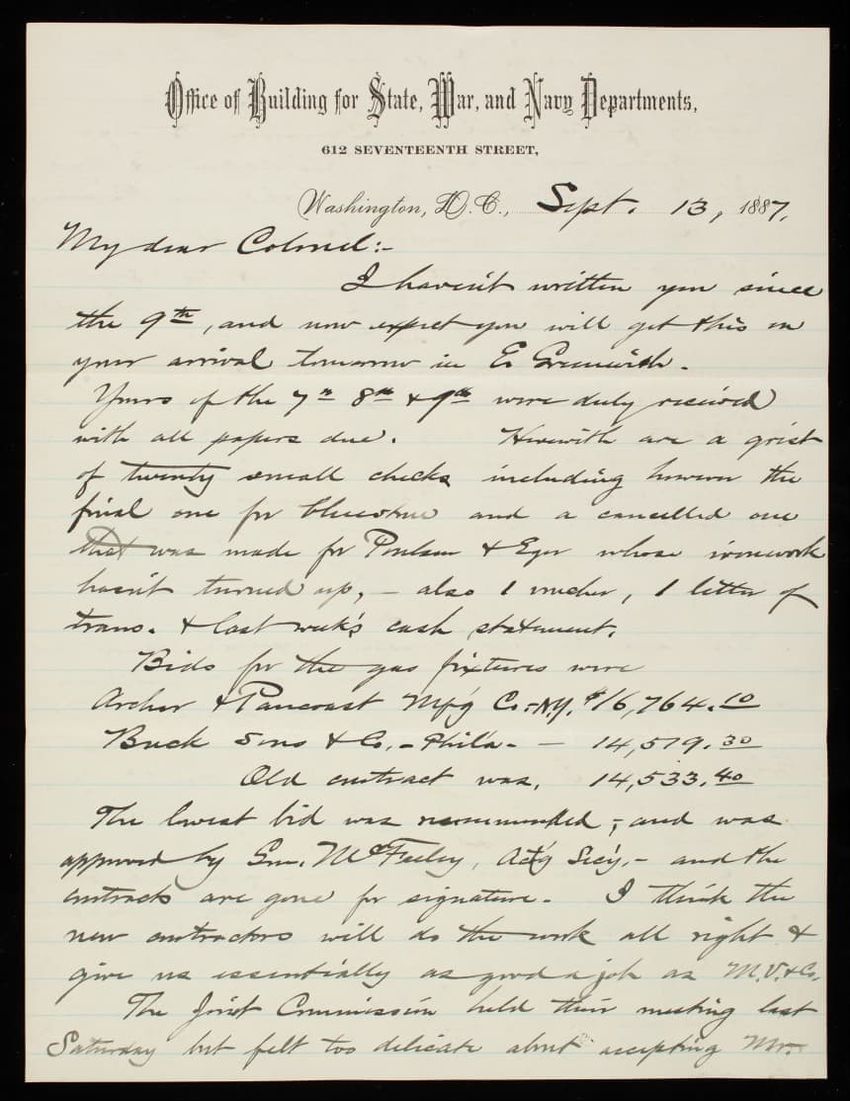 Office of Building for State, War, and Navy Departments,
612 SEVENTEENTH STREET,
Washington, D.C., Sept. 13, 1887.
My dear Colonel:-
I haven't written you since
the 9th, and now expect you will get this on
your arrival tomorrow in E. Greenwich.
Yours of the 7th 8th & 9th were duly received
with all papers due. Herewith are a grist
of twenty small checks including however the
final one for bluestone and a cancelled one
that was made for Poulson & Eger whose ironwork
hasn't turned up, - also 1 voucher, 1 letter of
trans. & last week's cash statement.
Bids for the gas fixtures were
Archer & Pancoast Mf'g Co.-N.Y. $16,764.10
Buck Sons & Co. - Phila. - 14,519.30
Old contract was, 14,533.40
The lowest bid was recommended, - and was
approved by Gen. McFeely, Act'g Sec'y, - and the
contracts are gone for signature. I think the
new contractors will do the work all right &
give us essentially as good a job as M.V. & Co.
The Joint Commission held their meeting last
Saturday but felt too delicate about accepting Mr.